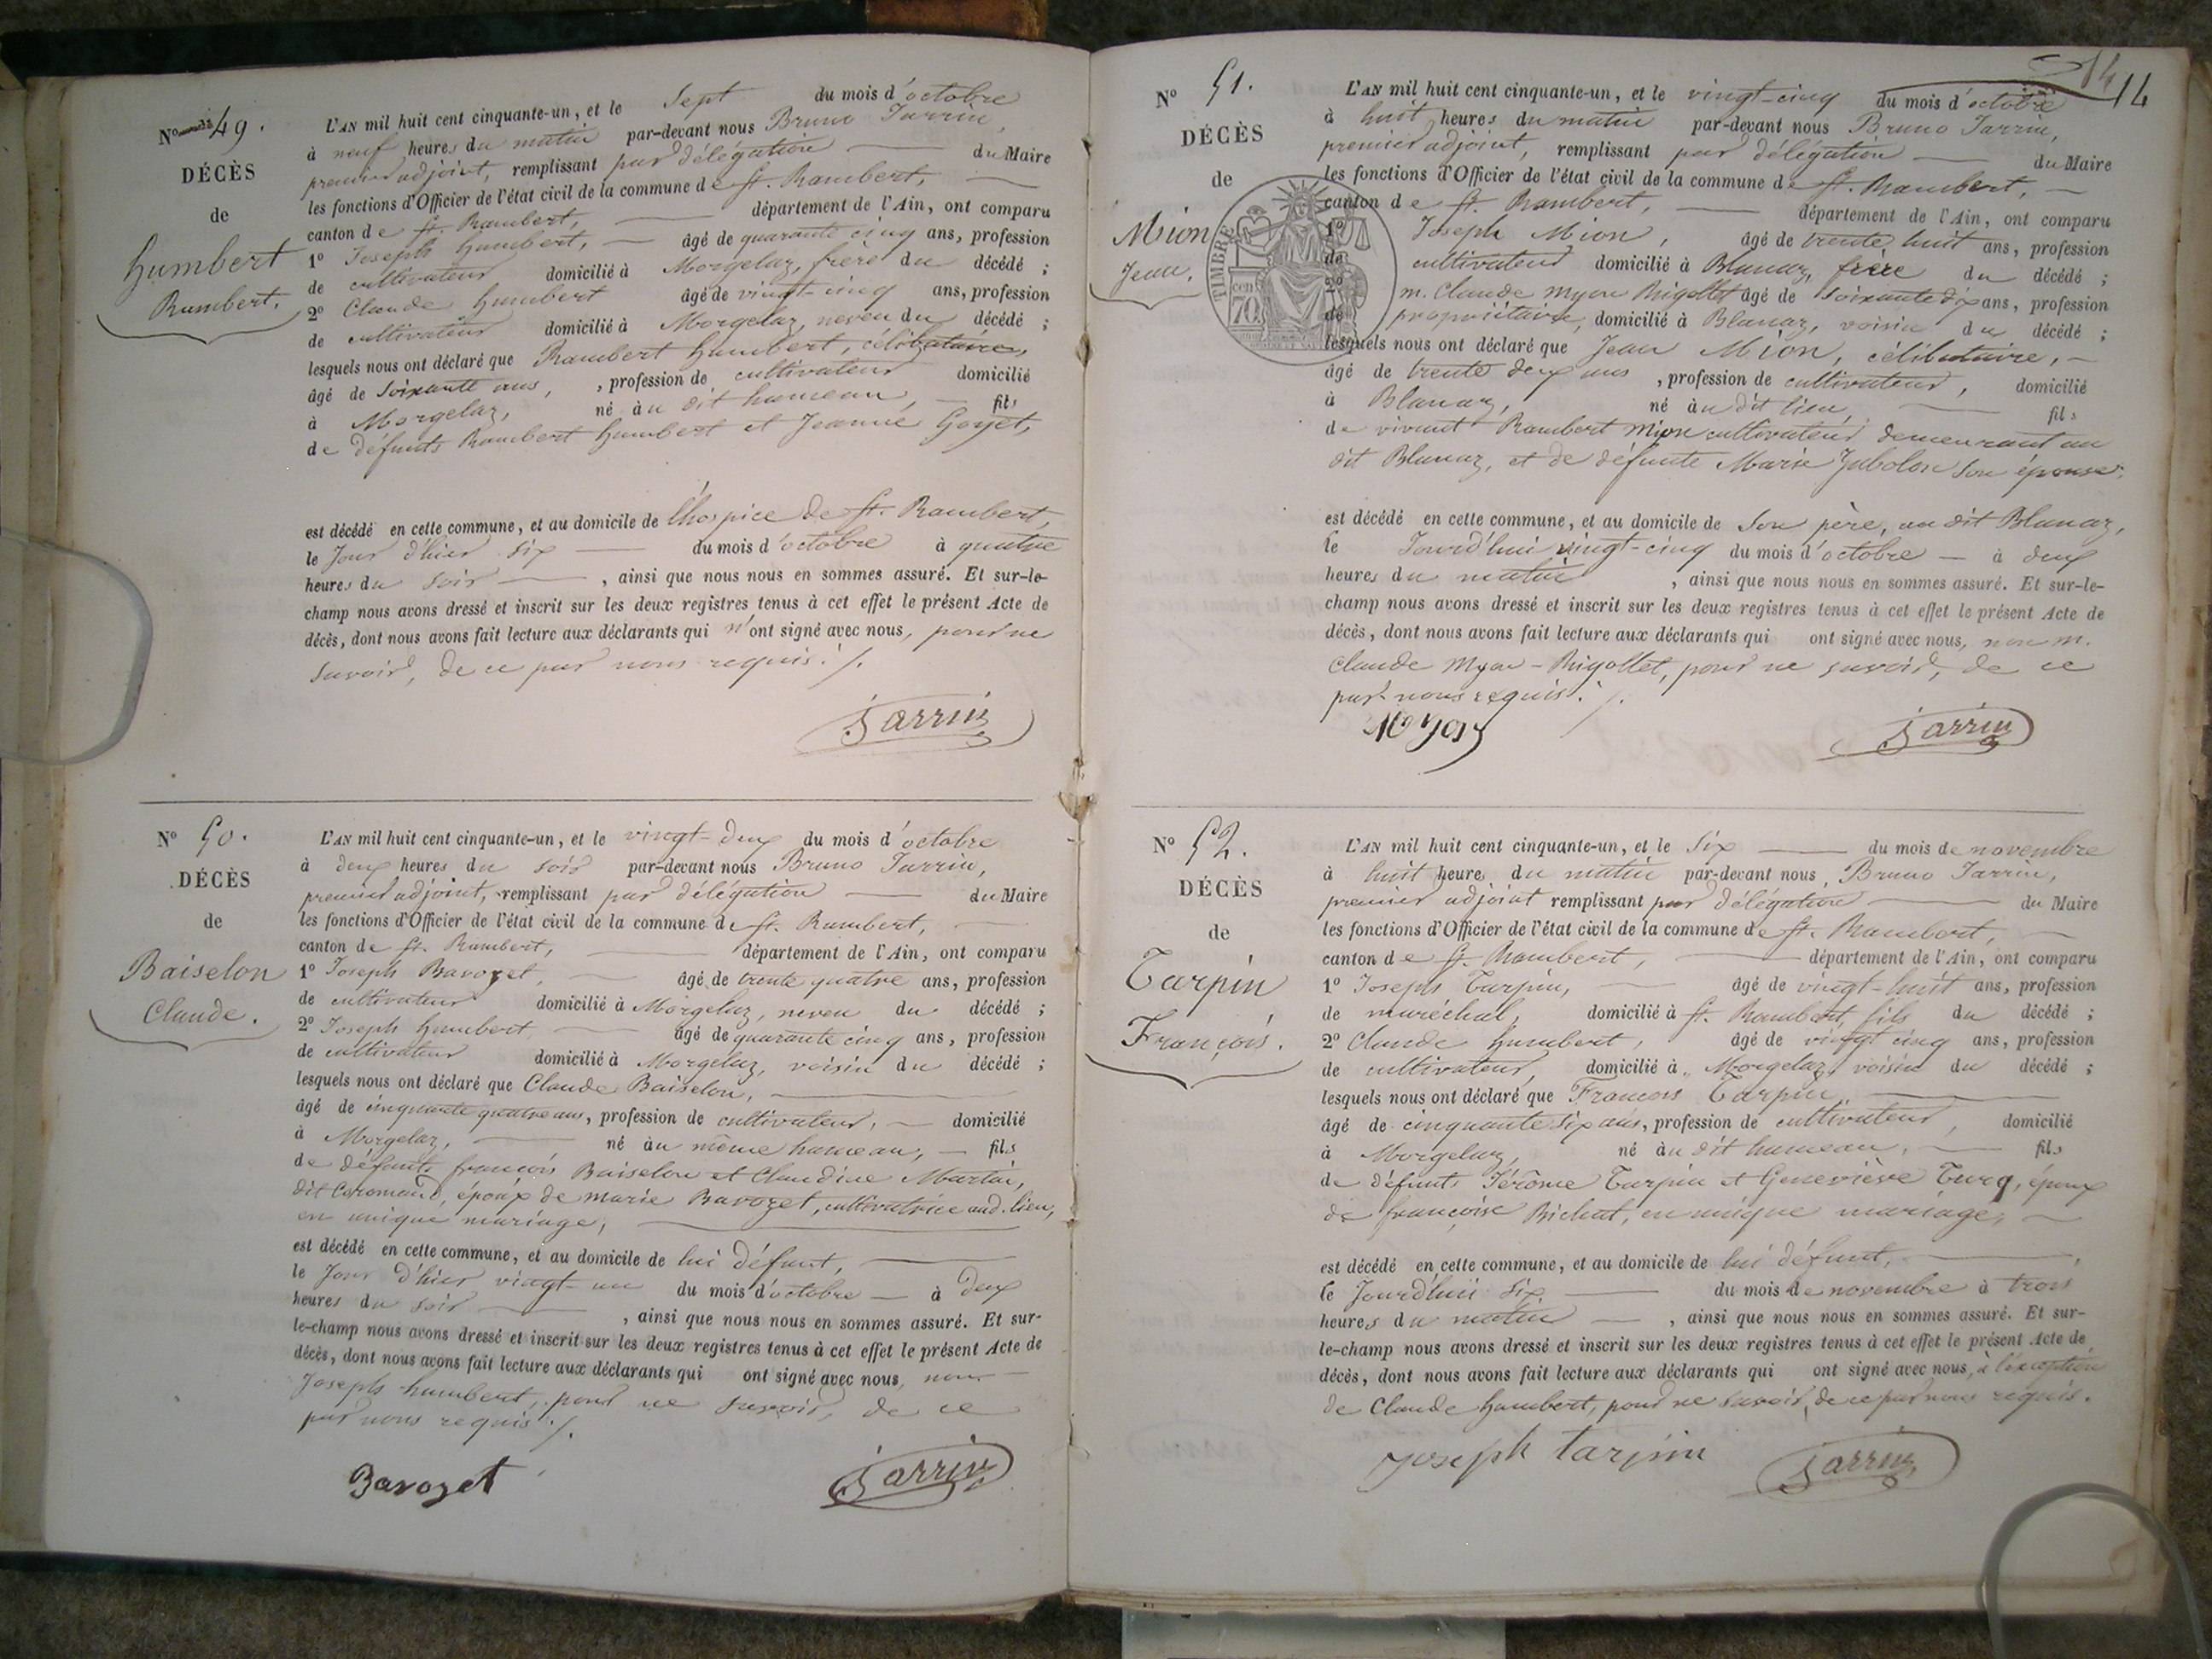 No 49.
DÉCÈS
de
humbert
Rambert.
L'AN mil huit cent cinquante-un, et le Sept du mois d'octobre
à neuf heures du matin par-devant nous Bruno Jarrin,
premier adjoint, remplissant par délégation du Maire
les fonctions d'Officier de l'état civil de la commune de St. Rambert,
canton de St. Rambert, département de l'Ain, ont comparu
1º Joseph humbert, âgé de quarante cinq ans, profession
de cultivateur domicilié à Morgelaz, frère du décédé ;
2º Claude humbert âgé de vingt-cinq ans, profession
de cultivateur domicilié à Morgelaz, neveu du décédé ;
lesquels nous ont déclaré que Rambert humbert, célibataire,
âgé de soixante ans, , profession de cultivateur domicilié
à Morgelaz, né àu dit hameau, fils
de défunts Rambert humbert et Jeanne Goyet,
est décédé en cette commune, et au domicile de l'hospice de St. Rambert,
le Jour d'hier six du mois d'octobre à quatre
heures du soir , ainsi que nous nous en sommes assuré. Et sur-le-
champ nous avons dressé et inscrit sur les deux registres tenus à cet effet le présent Acte de
décès, dont nous avons fait lecture aux déclarants qui n'ont signé avec nous, pour ne
savoir, de ce par nous requis ./.
Jarrin
No 50.
DÉCÈS
de
Baiselon
Claude.
L'AN mil huit cent cinquante-un, et le vingt-deux du mois d'octobre
à deux heures du soir par-devant nous Bruno Jarrin,
premier adjoint, remplissant par délégation du Maire
les fonctions d'Officier de l'état civil de la commune de St. Rambert,
canton de St. Rambert, département de l'Ain, ont comparu
1º Joseph Bavozet, âgé de trente quatre ans, profession
de cultivateur domicilié à Morgelaz, neveu du décédé ;
2º Joseph humbert âgé de quarante cinq ans, profession
de cultivateur domicilié à Morgelaz, voisin du décédé ;
lesquels nous ont déclaré que Claude Baiselon,
âgé de cinquante quatre ans, profession de cultivateur, domicilié
à Morgelaz, né àu même hameau, fils
de défunts françois Baiselon et Claudine Martin,
dit , époux de marie Bavozet, cultivatrice aud. lieu,
en unique mariage,
est décédé en cette commune, et au domicile de lui défunt,
le Jour d'hier vingt-un du mois d'octobre à deux
heures du soir , ainsi que nous nous en sommes assuré. Et sur-
le-champ nous avons dressé et inscrit sur les deux registres tenus à cet effet le présent Acte de
décès, dont nous avons fait lecture aux déclarants qui ont signé avec nous, non
Joseph humbert, pour ne savoir, de ce
par nous requis ./.
Bavozet Jarrin
14
No 51.
DÉCÈS
de
Mion
Jean.
TIMBRE
70 cen
L'AN mil huit cent cinquante-un, et le vingt-cinq du mois d'octobre
à huit heures du matin par-devant nous Bruno Jarrin,
premier adjoint, remplissant par délégation du Maire
les fonctions d'Officier de l'état civil de la commune de St. Rambert,
canton de St. Rambert, département de l'Ain, ont comparu
1º Joseph Mion, âgé de trente huit ans, profession
de cultivateur domicilié à Blanaz, frère du décédé ;
2º m. Claude Myon Rigollet âgé de soixante dix ans, profession
de propriétaire, domicilié à Blanaz, voisin du décédé ;
lesquels nous ont déclaré que Jean Mion, célibataire,
âgé de trente deux ans , profession de cultivateur, domicilié
à Blanaz, né àu dit lieu, fils
de vivant Rambert Mion cultivateur demeurant au
dit Blanaz, et de défunte Marie Jubolon son épouse.
est décédé en cette commune, et au domicile de son père, au dit Blanaz,
le Jourd'hui vingt-cinq du mois d'octobre à deux
heures du matin , ainsi que nous nous en sommes assuré. Et sur-le-
champ nous avons dressé et inscrit sur les deux registres tenus à cet effet le présent Acte de
décès, dont nous avons fait lecture aux déclarants qui ont signé avec nous, non m.
Claude Myon-Rigollet, pour ne savoir, de ce
par nous requis ./.
Jarrin
No 52.
DÉCÈS
de
Tarpin
François.
L'AN mil huit cent cinquante-un, et le six du mois de novembre
à huit heures du matin par-devant nous Bruno Jarrin,
premier adjoint remplissant par délégation du Maire
les fonctions d'Officier de l'état civil de la commune de St. Rambert,
canton de St. Rambert, département de l'Ain, ont comparu
1º Joseph Tarpin, âgé de vingt-huit ans, profession
de maréchal, domicilié à St. Rambert, fils du décédé ;
2º Claude humbert, âgé de vingt cinq ans, profession
de cultivateur, domicilié à Morgelaz, voisin du décédé ;
lesquels nous ont déclaré que François Tarpin,
âgé de cinquante six ans, profession de cultivateur, domicilié
à Morgelaz, né àu dit hameau, fils
de défunts Jérôme Tarpin et Geneviève Turq, époux
de françoise Bichat, en unique mariage,
est décédé en cette commune, et au domicile de lui défunt,
le Jourd'hui six du mois de novembre à trois
heures du matin , ainsi que nous nous en sommes assuré. Et sur-
le-champ nous avons dressé et inscrit sur les deux registres tenus à cet effet le présent Acte de
décès, dont nous avons fait lecture aux déclarants qui ont signé avec nous, à l'exception
de Claude humbert, pour ne savoir, de ce par nous requis.
Joseph tarpin Jarrin